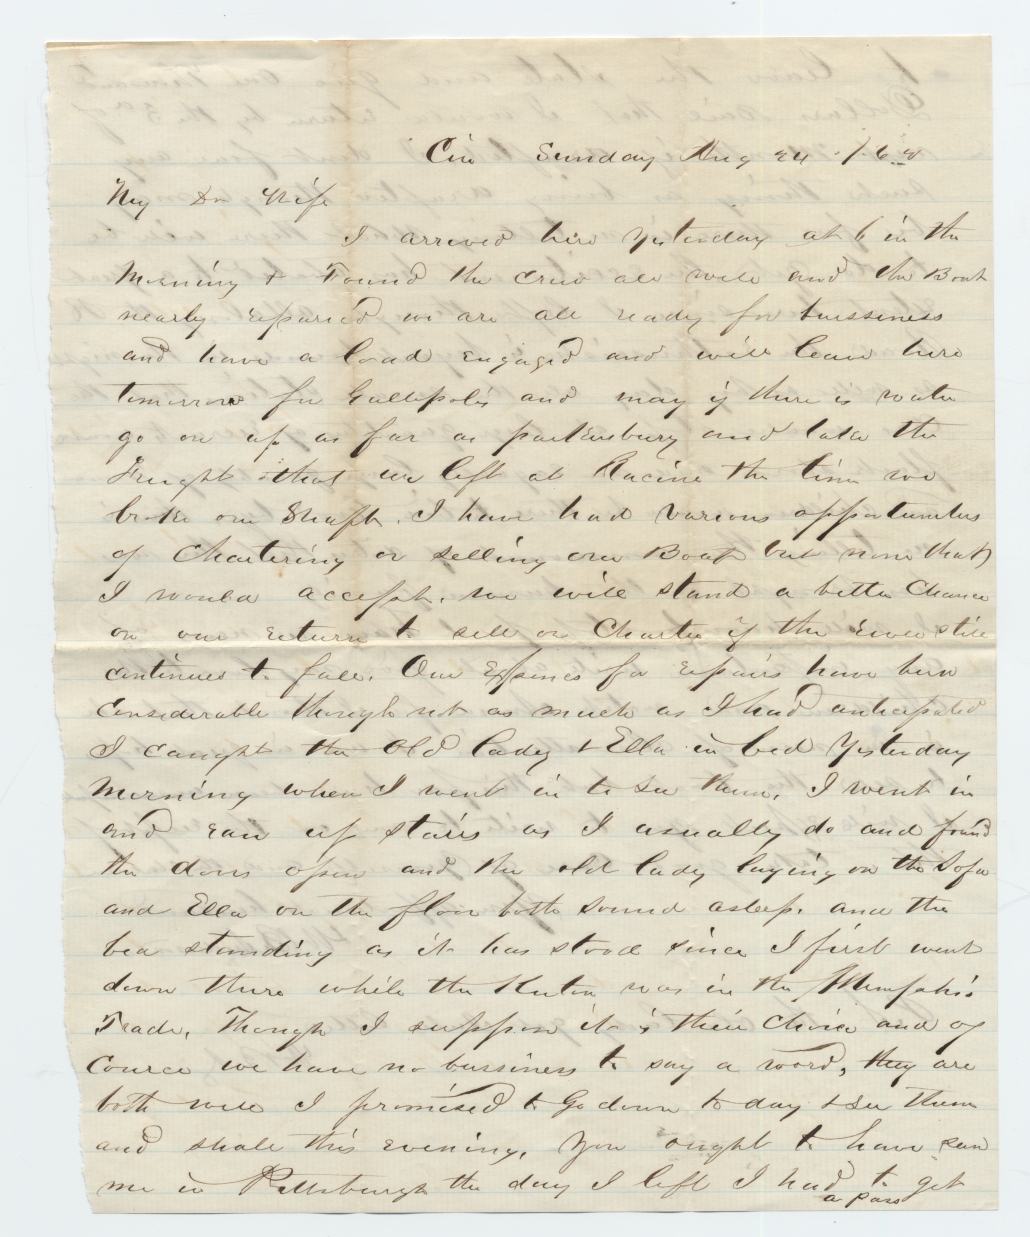 Cin Sunday Aug 24 /68
My Dr Wife
I arrived here Yesterday at 6 in the
Morning & Found the crew all well and the Boat
nearly repaired we are all ready for bussiness
and have a load engaged and will leave here
tomorrow for Gallipolis and may if there is water
go on up as far as parkersburg and take the
Freight that we left at Racine the time we
broke our Shaft. I have had various oppertunitus
of Chartering or selling our Boat but none that
I would accept. we will stand a better Chance
on our return to sell or Charter if the river still
continues to fall. Our Expences for repairs have been
Considerable though not as much as I had anticepated
I caught the Old lady & Ella in bed Yesterday
Morning when I went in to see them. I went in
and ran up stairs as I usually do and found
the doors open and the old lady laying on the Sofa
and Ella on the floor both sound asleep. and the
bed standing as it has stood since I first went
down there while the was in the Memphis
Trade. Though I suppose it is their choice and of
Cource we have no bussiness to say a word, they are
both well I promised to Go down to day & see them
and shall this evening. You ought to have seen
me in Pittsburgh the day I left I had to get
a pass